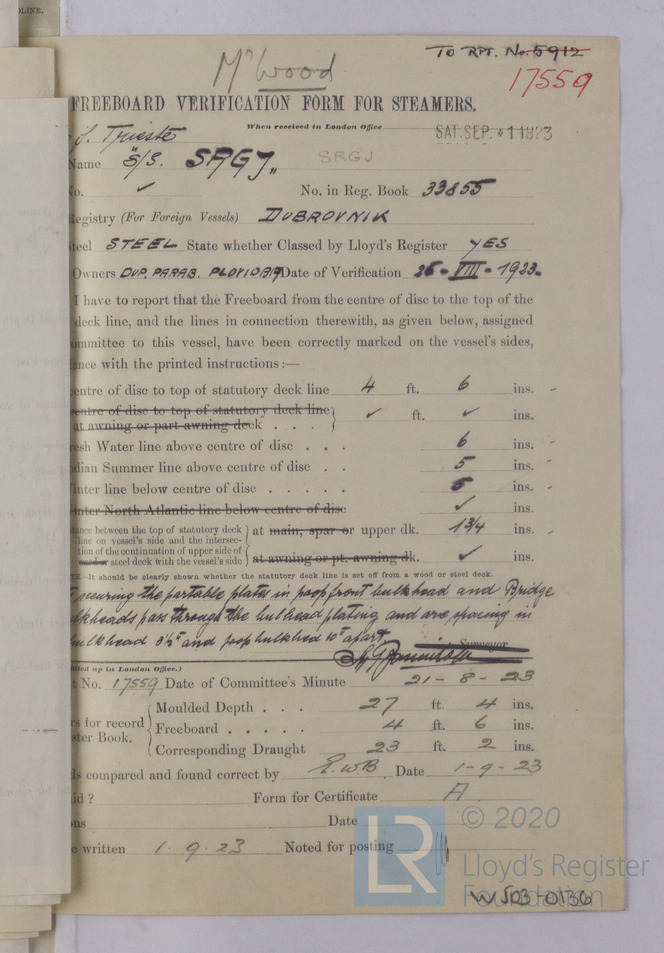 OLINE.
Mr Wood
TO RPT. No. 5912
17559
FREEBOARD VERIFICATION FORM FOR STEAMERS.
When received in London Office
SAT. SEP. 1 1923
Trieste
Name S/S. "SRGJ" SRGJ
No. ✓ No. in Reg. Book 33855
Registry (For Foreign Vessels) DUBROVNIK
teel STEEL State whether Classed by Lloyd's Register YES
Owners DUP. PARAB. PLOVIDBA Date of Verification 26-VIII-1923.
I have to report that the Freeboard from the centre of disc to the top of the
deck line, and the lines in connection therewith, as given below, assigned
ommittee to this vessel, have been correctly marked on the vessel's sides,
ance with the printed instructions:—
entre of disc to top of statutory deck line 4 ft. 6 ins.
entre of disc to top of statutory deck line
at awning or part awning deck . . . ✓ ft. ✓ ins.
esh Water line above centre of disc . . . 6 ins.
dian Summer line above centre of disc . . 5 ins.
inter line below centre of disc . . . . . 5 ins.
inter North Atlantic line below centre of disc ✓ ins.
ance between the top of statutory deck
line on vessel's side and the intersec-
tion of the continuation of upper side of
steel deck with the vessel's side
at main, spar or upper dk. 1 3/4 ins.
at awning or pt. awning dk. ✓ ins.
TE.—It should be clearly shown whether the statutory deck line is set off from a wood or steel deck.
securing the portable plates in poop front bulkhead and Bridge
lkheads pass through the bulhead plating and are spacing in
bulkhead 3½" and poop bulkhed 10" apart.
Surveyor
illed up in London Office.)
t No. 17559 Date of Committee's Minute 21-8-23
rs for record
ster Book.
Moulded Depth . . . 27 ft. 4 ins.
Freeboard . . . . . 4 ft. 6 ins.
Corresponding Draught 23 ft. 2 ins.
ls compared and found correct by E.W.B. Date 1-9-23
id ? Form for Certificate A.
ns Date
e written 1.9.23 Noted for posting
LR
© 2020
Lloyd's Register
Foundation
W503-0136